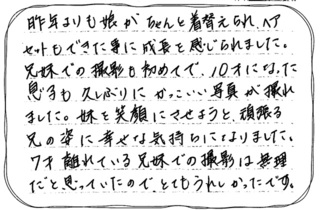 昨年よりも娘がちゃんと着替えられ、ヘア
セットもできた事に成長を感じられました。
兄妹での撮影も初めてで、10才になった
息子も久しぶりにかっこいい写真が撮れ
ました。妹を笑顔にさせようと、頑張る
兄の姿に幸せな気持ちになりました。
7才離れている兄妹での撮影は無理
だと思っていたのでとてもうれしかったです。